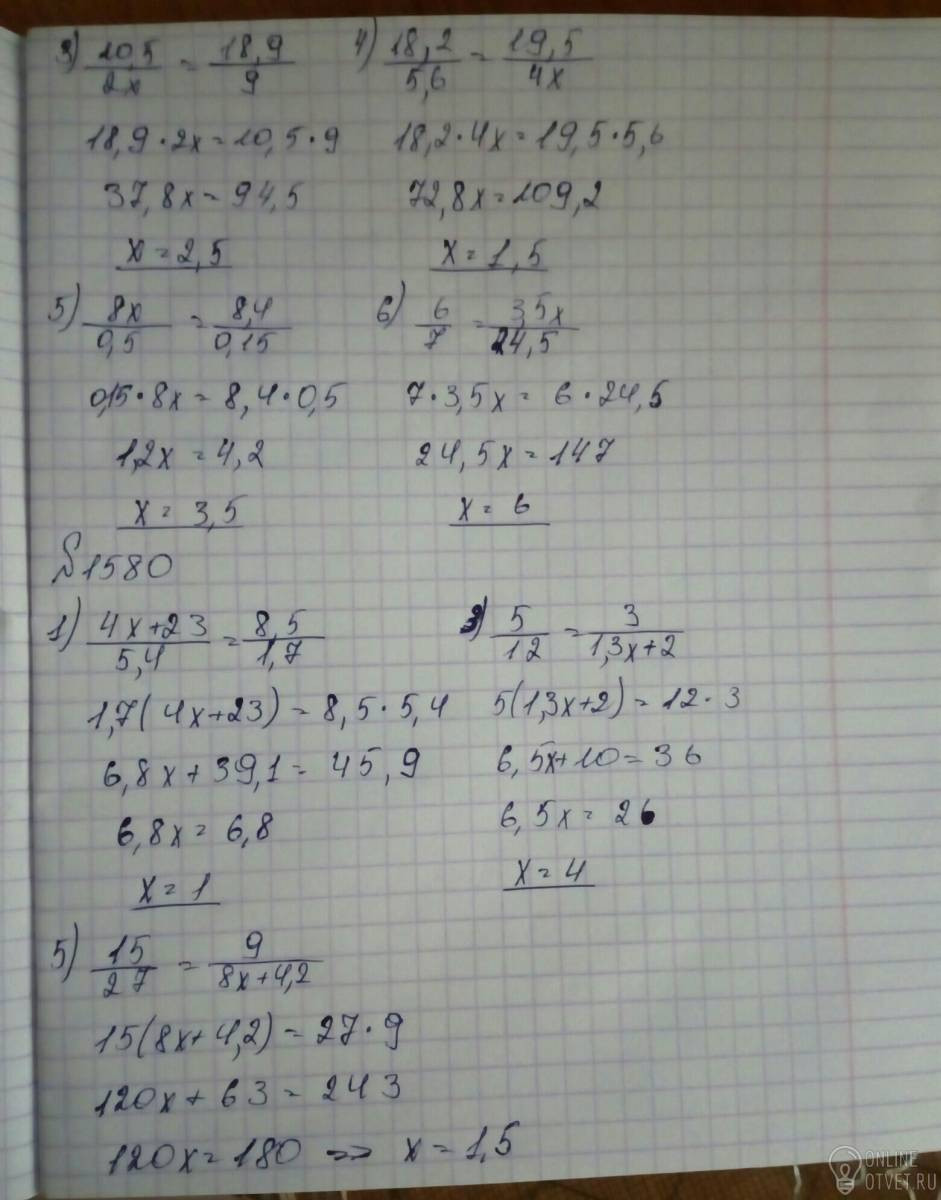 3) 10,5/2x = 18,9/9
18,9·2x=10,5·9
37,8x=94,5
x=2,5
4) 18,2/5,6 = 19,5/4x
18,2·4x=19,5·5,6
72,8x=109,2
x=1,5
5) 8x/0,5 = 8,4/0,15
0,15·8x=8,4·0,5
1,2x=4,2
x=3,5
6) 6/7 = 3,5x/24,5
7·3,5x=6·24,5
24,5x=147
x=6
№1580
1) 4x+23/5,4 = 8,5/1,7
1,7(4x+23)=8,5·5,4
6,8x+39,1=45,9
6,8x=6,8
x=1
3) 5/12 = 3/1,3x+2
5(1,3x+2)=12·3
6,5x+10=36
6,5x=26
x=4
5) 15/27 = 9/8x+4,2
15(8x+4,2)=27·9
120x+63=243
120x=180 => x=1,5
ONLINE
OTVET.RU